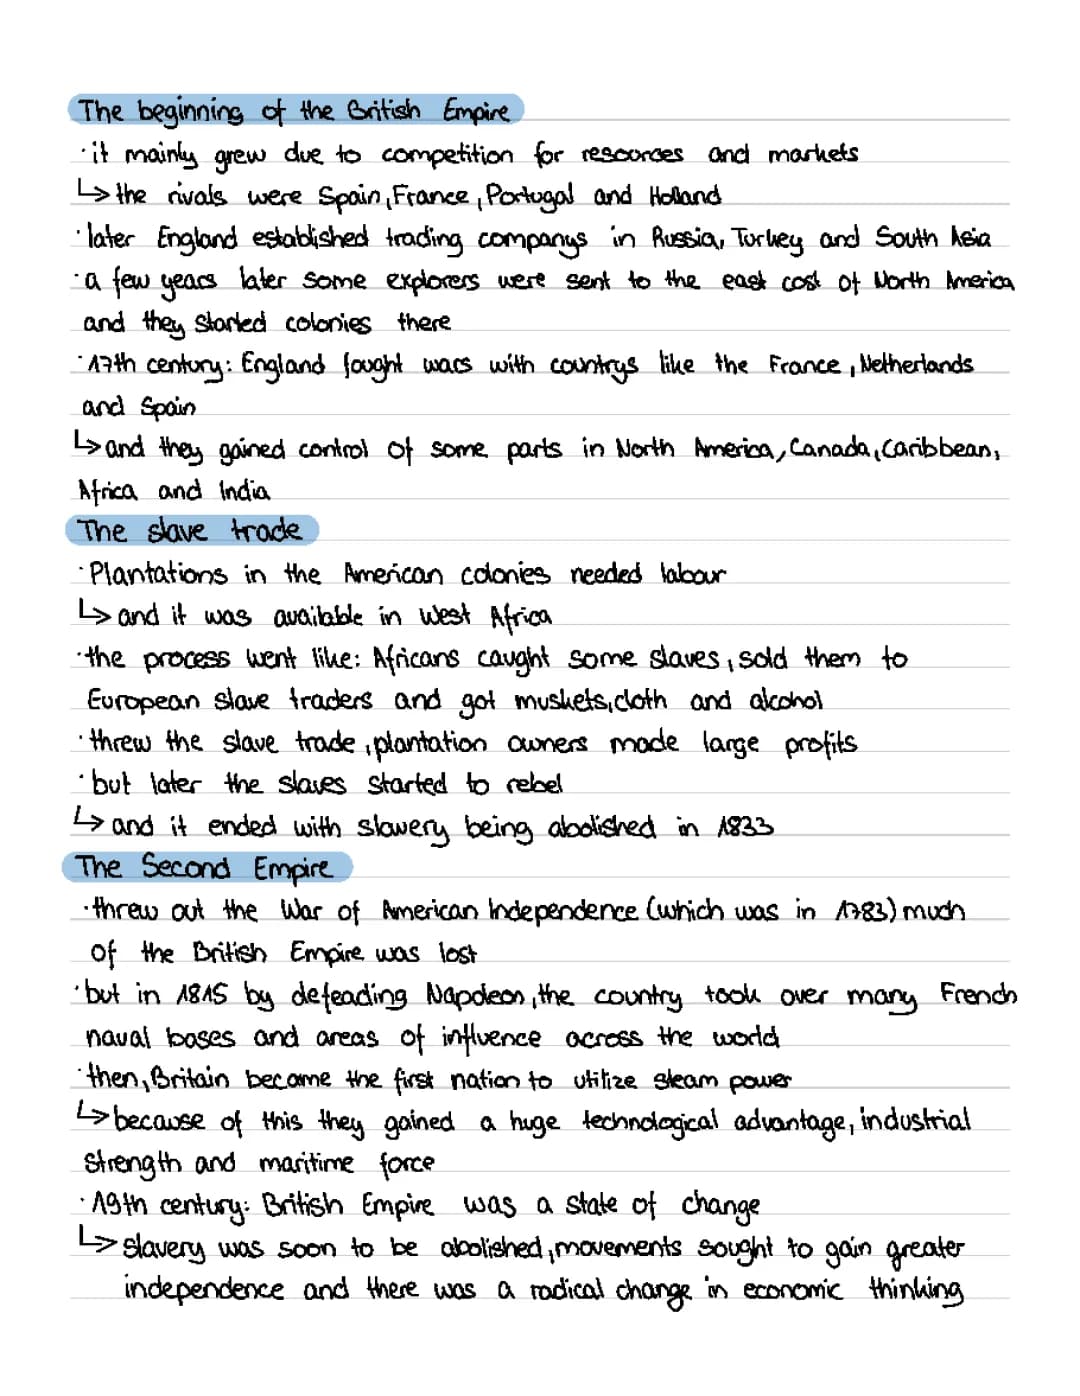 The beginning of the British Empire
· it mainly grew due to competition for resources and markets
↳ the rivals were Spain, France, Portugal and Holland
· later England established trading companys in Russia, Turkey and South Asia
· a few years later some explorers were sent to the east cost of North America
and they started colonies there
· 17th century: England fought wars with countrys like the France, Netherlands
and Spain
↳ and they gained control of some parts in North America, Canada, Caribbean,
Africa and India
The slave trade
· Plantations in the American colonies needed labour
↳ and it was available in West Africa
· the process went like: Africans caught some slaves, sold them to
European slave traders and got muskets, cloth and alcohol
· threw the slave trade, plantation owners made large profits
· but later the slaves started to rebel
↳ and it ended with slavery being abolished in 1833
The Second Empire
· threw out the War of American Independence (which was in 1783) much
of the British Empire was lost
· but in 1815 by defeading Napoleon, the country took over many French
naval bases and areas of influence across the world
· then, Britain became the first nation to utilize steam power
↳ because of this they gained a huge technological advantage, industrial
strength and maritime force
· 19th century: British Empire was a state of change
↳ slavery was soon to be abolished, movements sought to gain greater
independence and there was a radical change in economic thinking